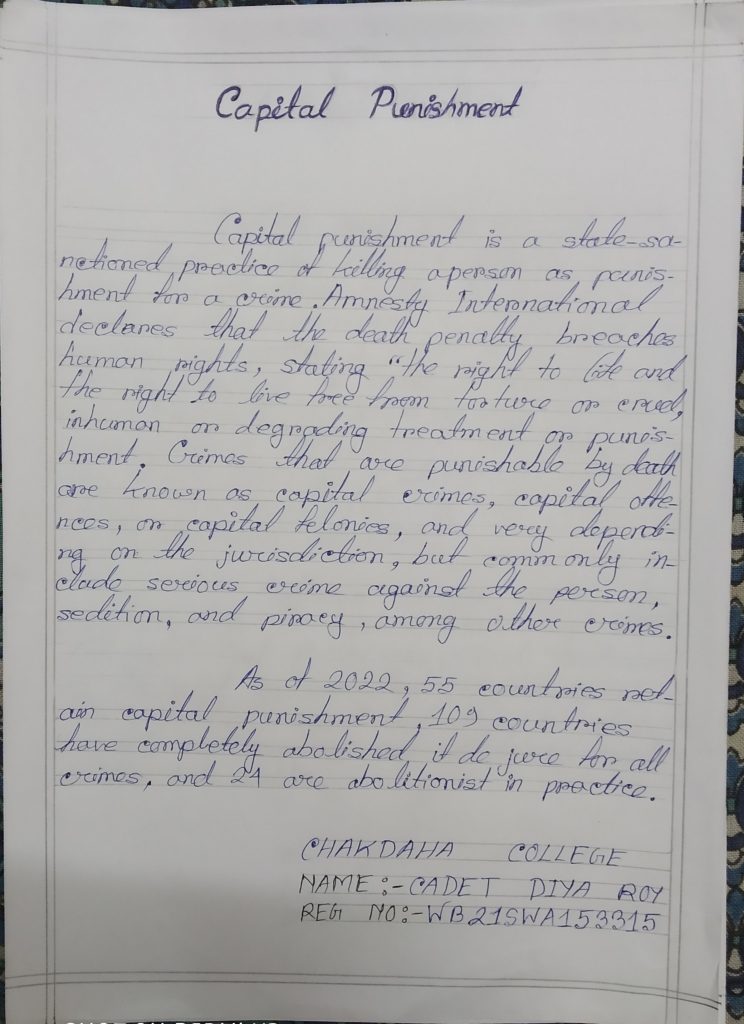 Capital Punishment
Capital punishment is a state-sa-
nctioned practice of killing a person as punis-
hment for a crime. Amnesty International
declares that the death penalty breaches
human rights, stating "the right to life and
the right to live free from torture or cruel,
inhuman or degrading treatment or punis-
hment. Crimes that are punishable by death
are known as capital crimes, capital offe-
nces, or capital felonies, and very dependi-
ng on the jurisdiction, but commonly in-
clude serious crime against the person,
sedition, and piracy, among other crimes.
As of 2022, 55 countries ret-
ain capital punishment, 109 countries
have completely abolished it de jure for all
crimes, and 24 are abolitionist in practice.
CHAKDAHA COLLEGE
NAME:-CADET DIYA ROY
REG NO:-WB21SWA153315